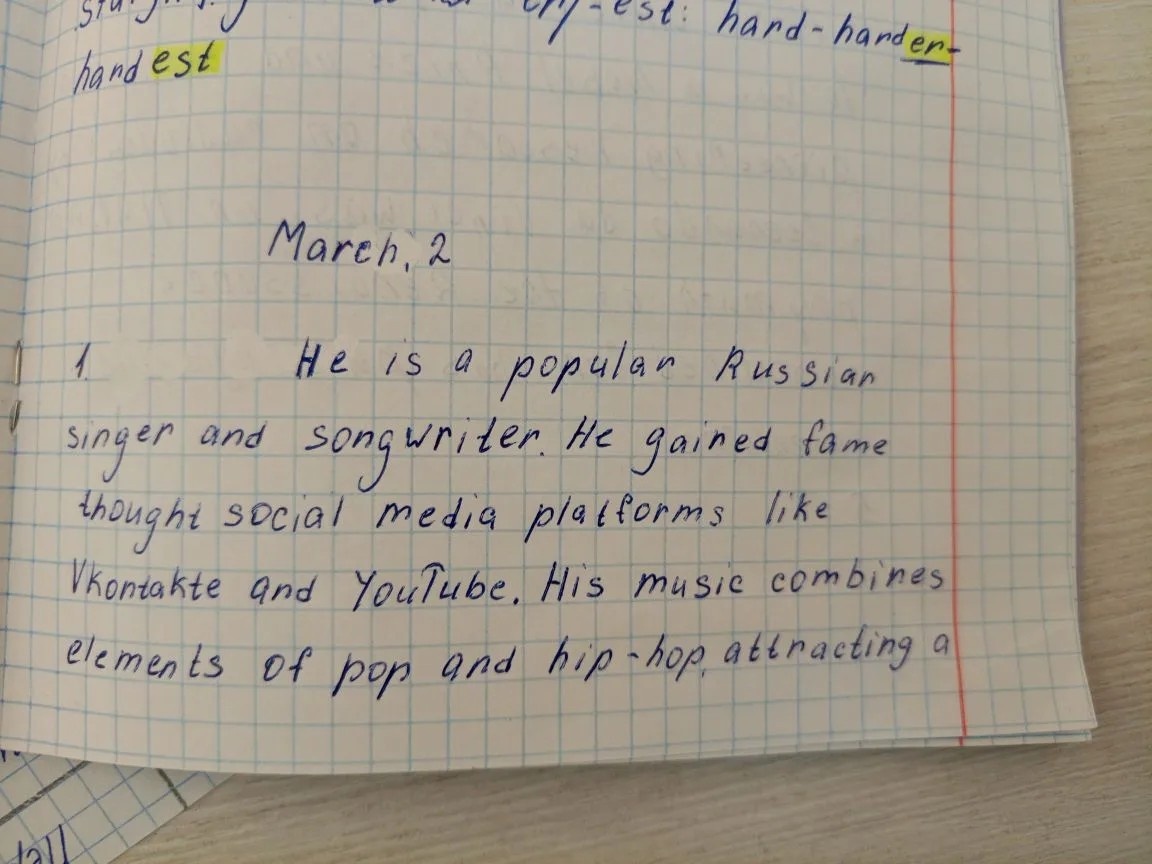 -est: hard-harder-
hardest
March, 2
1. He is a popular Russian
singer and songwriter. He gained fame
thought social media platforms like
Vkontakte and YouTube. His music combines
elements of pop and hip-hop, attracting a